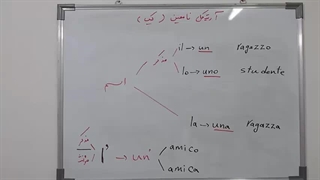 آرتیکل نامعین (یک)
il → un ragazzo
مذکر
lo → uno studente
اسم
la → una ragazza
مذکر
l' → un' amico
amica